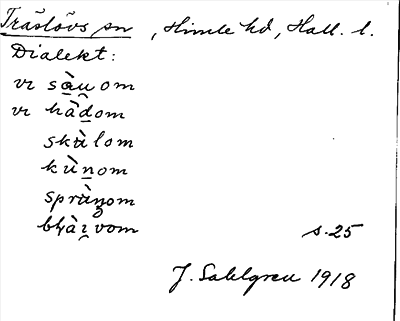 Träslövs sn, Himle hd, Hall. l.
Dialekt:
vi sàu̯om
vi hàdom
skùlom
kùnom
sprùŋom
blài̯vom
s. 25
J. Sahlgren 1918